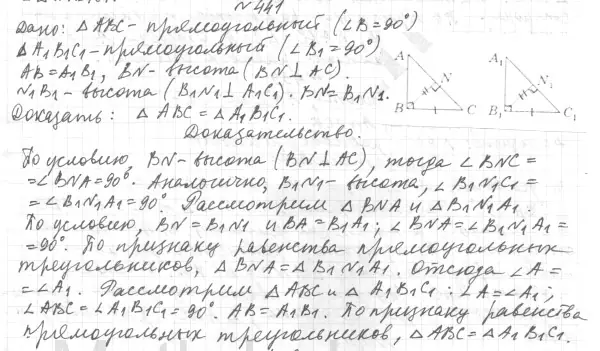 №441
Дано: △ABC - прямоугольный (∠B=90°)
△A₁B₁C₁ - прямоугольный (∠B₁=90°)
AB=A₁B₁, BN - высота (BN⊥AC).
N₁B₁ - высота (B₁N₁⊥A₁C₁). BN=B₁N₁.
Доказать: △ABC=△A₁B₁C₁.
A N B C A₁ N₁ B₁ C₁
Доказательство.
По условию, BN - высота (BN⊥AC), тогда ∠BNC=
=∠BNA=90°. Аналогично, B₁N₁ - высота, ∠B₁N₁C₁=
=∠B₁N₁A₁=90°. Рассмотрим △BNA и △B₁N₁A₁.
По условию, BN=B₁N₁ и BA=B₁A₁; ∠BNA=∠B₁N₁A₁=
=90°. По признаку равенства прямоугольных
треугольников, △BNA=△B₁N₁A₁. Отсюда ∠A=
=∠A₁. Рассмотрим △ABC и △A₁B₁C₁: ∠A=∠A₁;
∠ABC=∠A₁B₁C₁=90°. AB=A₁B₁. По признаку равенства
прямоугольных треугольников, △ABC=△A₁B₁C₁.